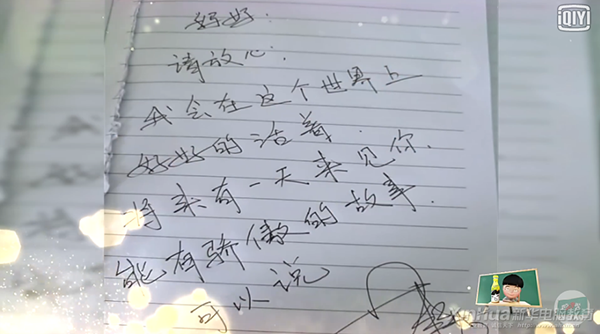 iQIYI
好好:
请放心:
我会在这个世界上
好好的活着.
将来有一天来见你.
能有骄傲的故事.
可以说
新华电脑教育